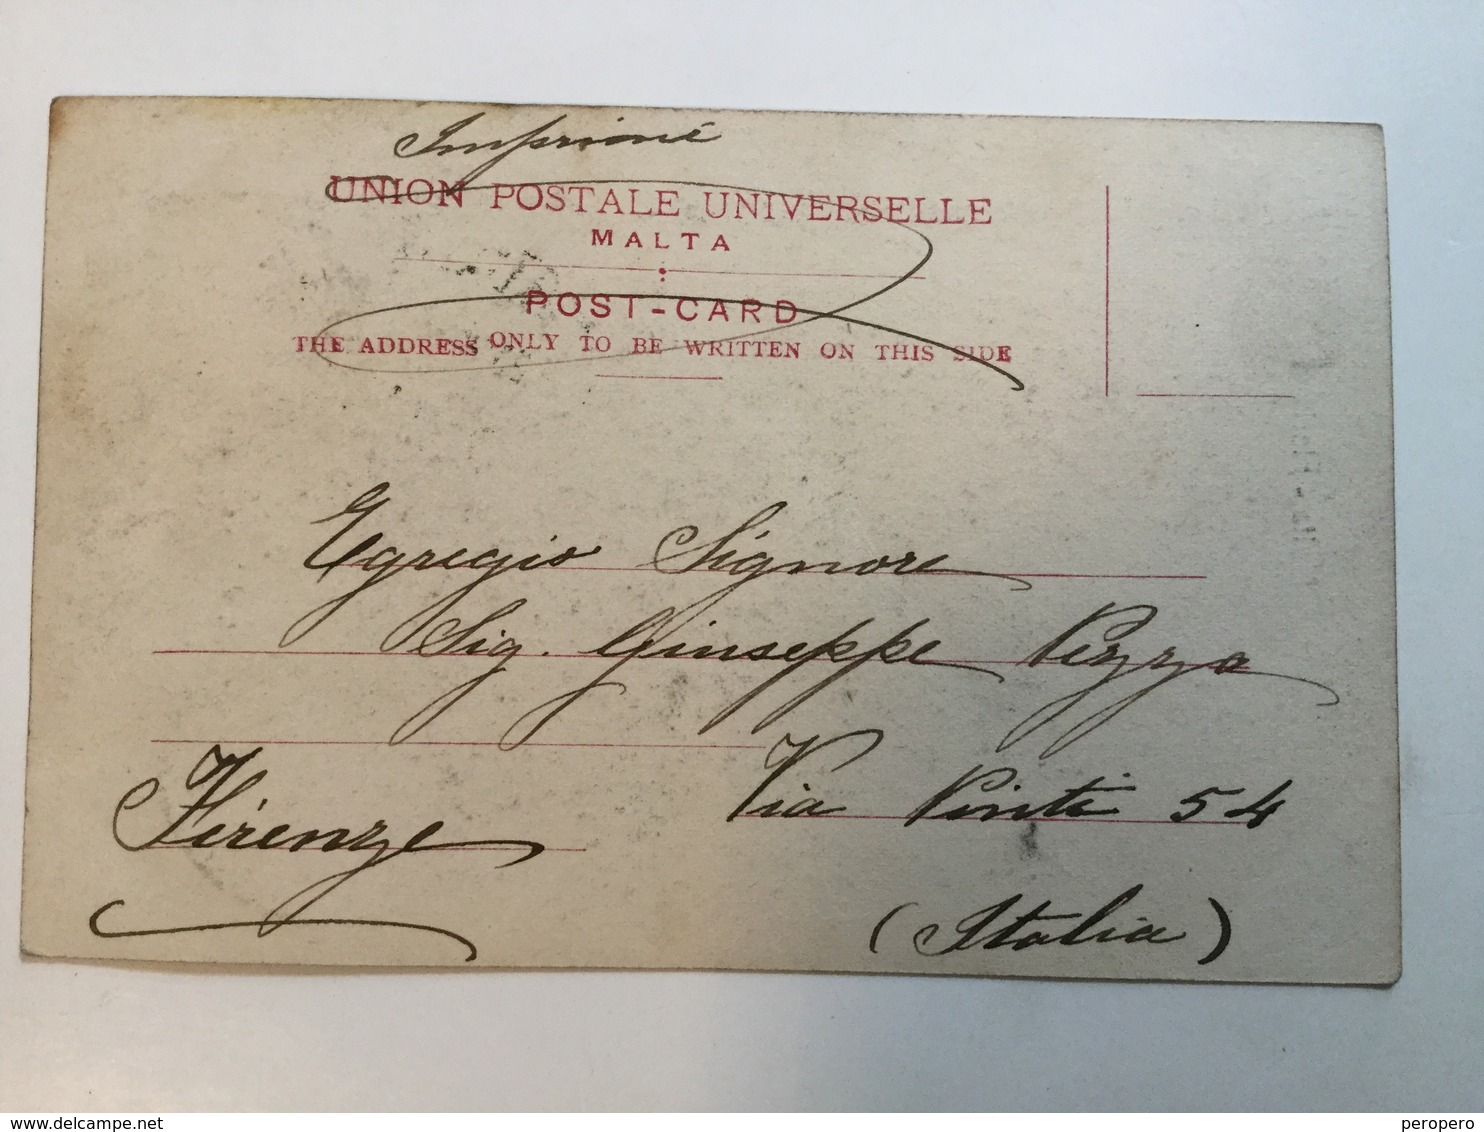 Imprimé
UNION POSTALE UNIVERSELLE
MALTA
POST-CARD
THE ADDRESS ONLY TO BE WRITTEN ON THIS SIDE
Egregio Signore
Sig. Giuseppe Pezza
Via Pinti 54
Firenze
(Italia)
peropero